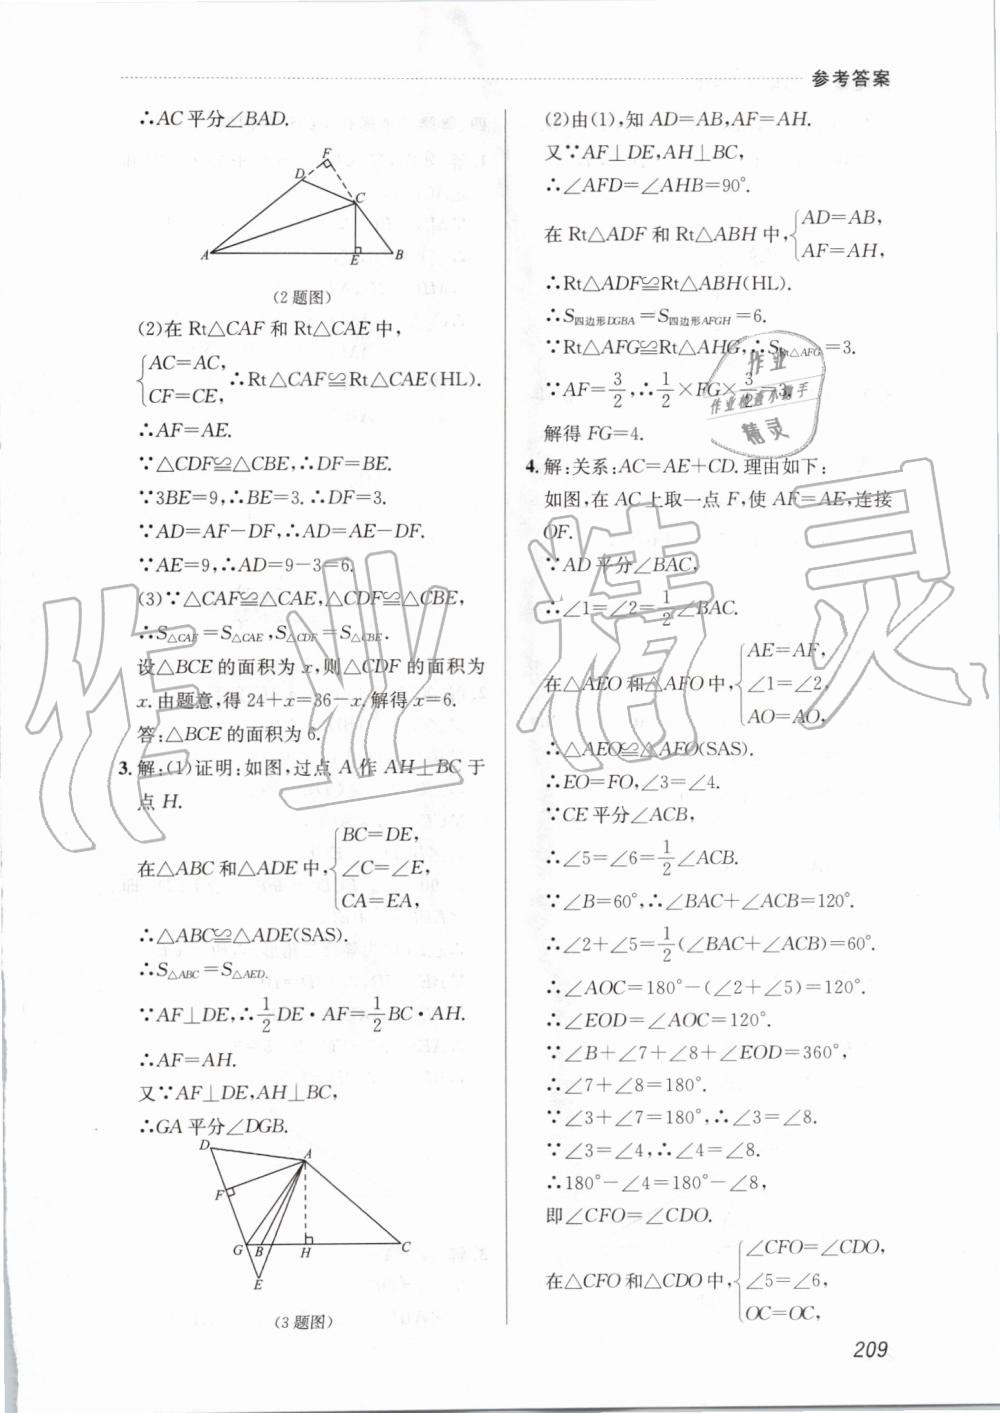 参考答案
∴AC平分∠BAD.
F
D
C
A
E
B
(2题图)
(2)在Rt△CAF和Rt△CAE中,
{AC=AC,
CF=CE,
∴Rt△CAF≌Rt△CAE(HL).
∴AF=AE.
∵△CDF≌△CBE,∴DF=BE.
∵3BE=9,∴BE=3.∴DF=3.
∵AD=AF-DF,∴AD=AE-DF.
∵AE=9,∴AD=9-3=6.
(3)∵△CAF≌△CAE,△CDF≌△CBE,
∴S△CAF=S△CAE,S△CDF=S△CBE.
设△BCE的面积为x,则△CDF的面积为
x.由题意,得24+x=36-x.解得x=6.
答:△BCE的面积为6.
3.解:(1)证明:如图,过点A作AH⊥BC于
点H.
在△ABC和△ADE中,{BC=DE,
∠C=∠E,
CA=EA,
∴△ABC≌△ADE(SAS).
∴S△ABC=S△AED.
∵AF⊥DE,∴1/2DE·AF=1/2BC·AH.
∴AF=AH.
又∵AF⊥DE,AH⊥BC,
∴GA平分∠DGB.
D
A
F
G
B
H
C
E
(3题图)
(2)由(1),知AD=AB,AF=AH.
又∵AF⊥DE,AH⊥BC,
∴∠AFD=∠AHB=90°.
在Rt△ADF和Rt△ABH中,{AD=AB,
AF=AH,
∴Rt△ADF≌Rt△ABH(HL).
∴S四边形DGBA=S四边形AFGH=6.
∵Rt△AFG≌Rt△AHG,∴SRt△AFG=3.
∵AF=3/2,∴1/2×FG×3/2=3.
解得FG=4.
4.解:关系:AC=AE+CD.理由如下:
如图,在AC上取一点F,使AF=AE,连接
OF.
∵AD平分∠BAC,
∴∠1=∠2=1/2∠BAC.
在△AEO和△AFO中,{AE=AF,
∠1=∠2,
AO=AO,
∴△AEO≌△AFO(SAS).
∴EO=FO,∠3=∠4.
∵CE平分∠ACB,
∴∠5=∠6=1/2∠ACB.
∵∠B=60°,∴∠BAC+∠ACB=120°.
∴∠2+∠5=1/2(∠BAC+∠ACB)=60°.
∴∠AOC=180°-(∠2+∠5)=120°.
∴∠EOD=∠AOC=120°.
∵∠B+∠7+∠8+∠EOD=360°,
∴∠7+∠8=180°.
∵∠3+∠7=180°,∴∠3=∠8.
∵∠3=∠4,∴∠4=∠8.
∴180°-∠4=180°-∠8,
即∠CFO=∠CDO.
在△CFO和△CDO中,{∠CFO=∠CDO,
∠5=∠6,
OC=OC,
209
作业精灵
作业
作业检查小助手
精灵